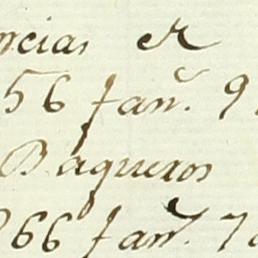 ncias en
56 fan.s 9
Baqueros
266 fan.s 7